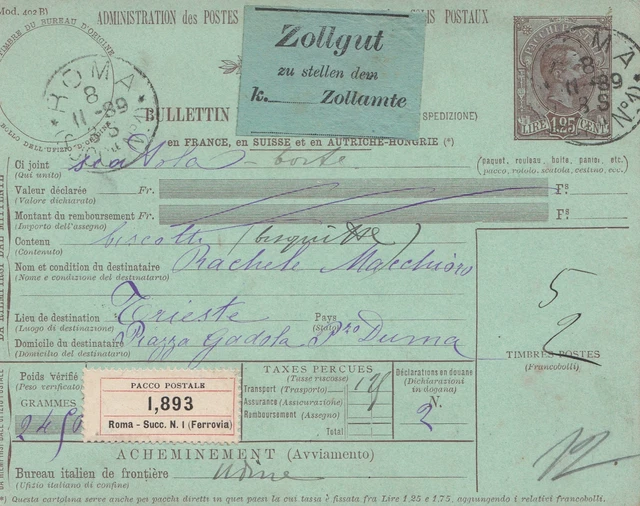 Mod. 402 B)
ADMINISTRATION des POSTES
COLIS POSTAUX
TIMBRE DU BUREAU D'ORIGINE
BOLLO DELL'UFIZIO D'ORIGINE
ROMA
8
11-89
8 S
Zollgut
zu stellen dem
k. Zollamte
LIRE 1.25 CENT
ROMA
8
11-89
8 S
BULLETIN
SPEDIZIONE)
en FRANCE, en SUISSE et en AUTRICHE-HONGRIE (*)
Ci joint scatola - boite (paquet, rouleau, boite, panier, etc.
(Qui unito) (pacco, rotolo, scatola, cestino, ecc.)
Valeur déclarée Fr. Fs
(Valore dichiarato)
Montant du remboursement Fr. Fs
(Importo dell'assegno)
Contenu biscotti
(Contenuto)
Nom et condition du destinataire Rachele Macchioro
(Nome e condizione del destinatario)
5
2
Lieu de destination Trieste Pays
(Luogo di destinazione) (Stato)
Domicile du destinataire Piazza Gadola Pzo Duma
(Domicilio del destinatario)
TIMBRES POSTES
(Francobolli)
Poids vérifié
(Peso verificato)
GRAMMES
PACCO POSTALE
1,893
Roma - Succ. N. 1 (Ferrovia)
TAXES PERÇUES
(Tasse riscosse)
Transport (Trasporto)
Assurance (Assicurazione)
Remboursement (Assegno)
Total
Déclarations en douane
(Dichiarazioni
in dogana)
N.
2
ACHEMINEMENT (Avviamento)
Bureau italien de frontière Udine
(Ufizio italiano di confine)
*) Questa cartolina serve anche per pacchi diretti in quei paesi la cui tassa è fissata fra Lire 1.25 e 1.75, aggiungendo i relativi francobolli.